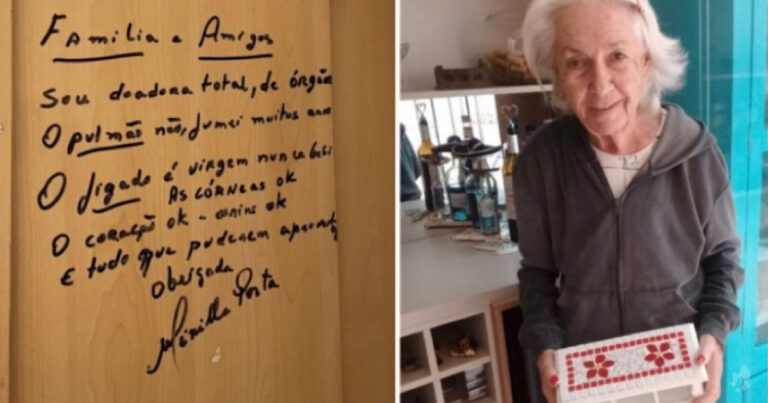 Família e Amigos
Sou doadora total, de órgão
O pulmão não, fumei muitos anos
O fígado é virgem nunca bebi
As córneas ok
O coração ok - ok
E tudo que puderem aproveitar
Obrigada
Porta